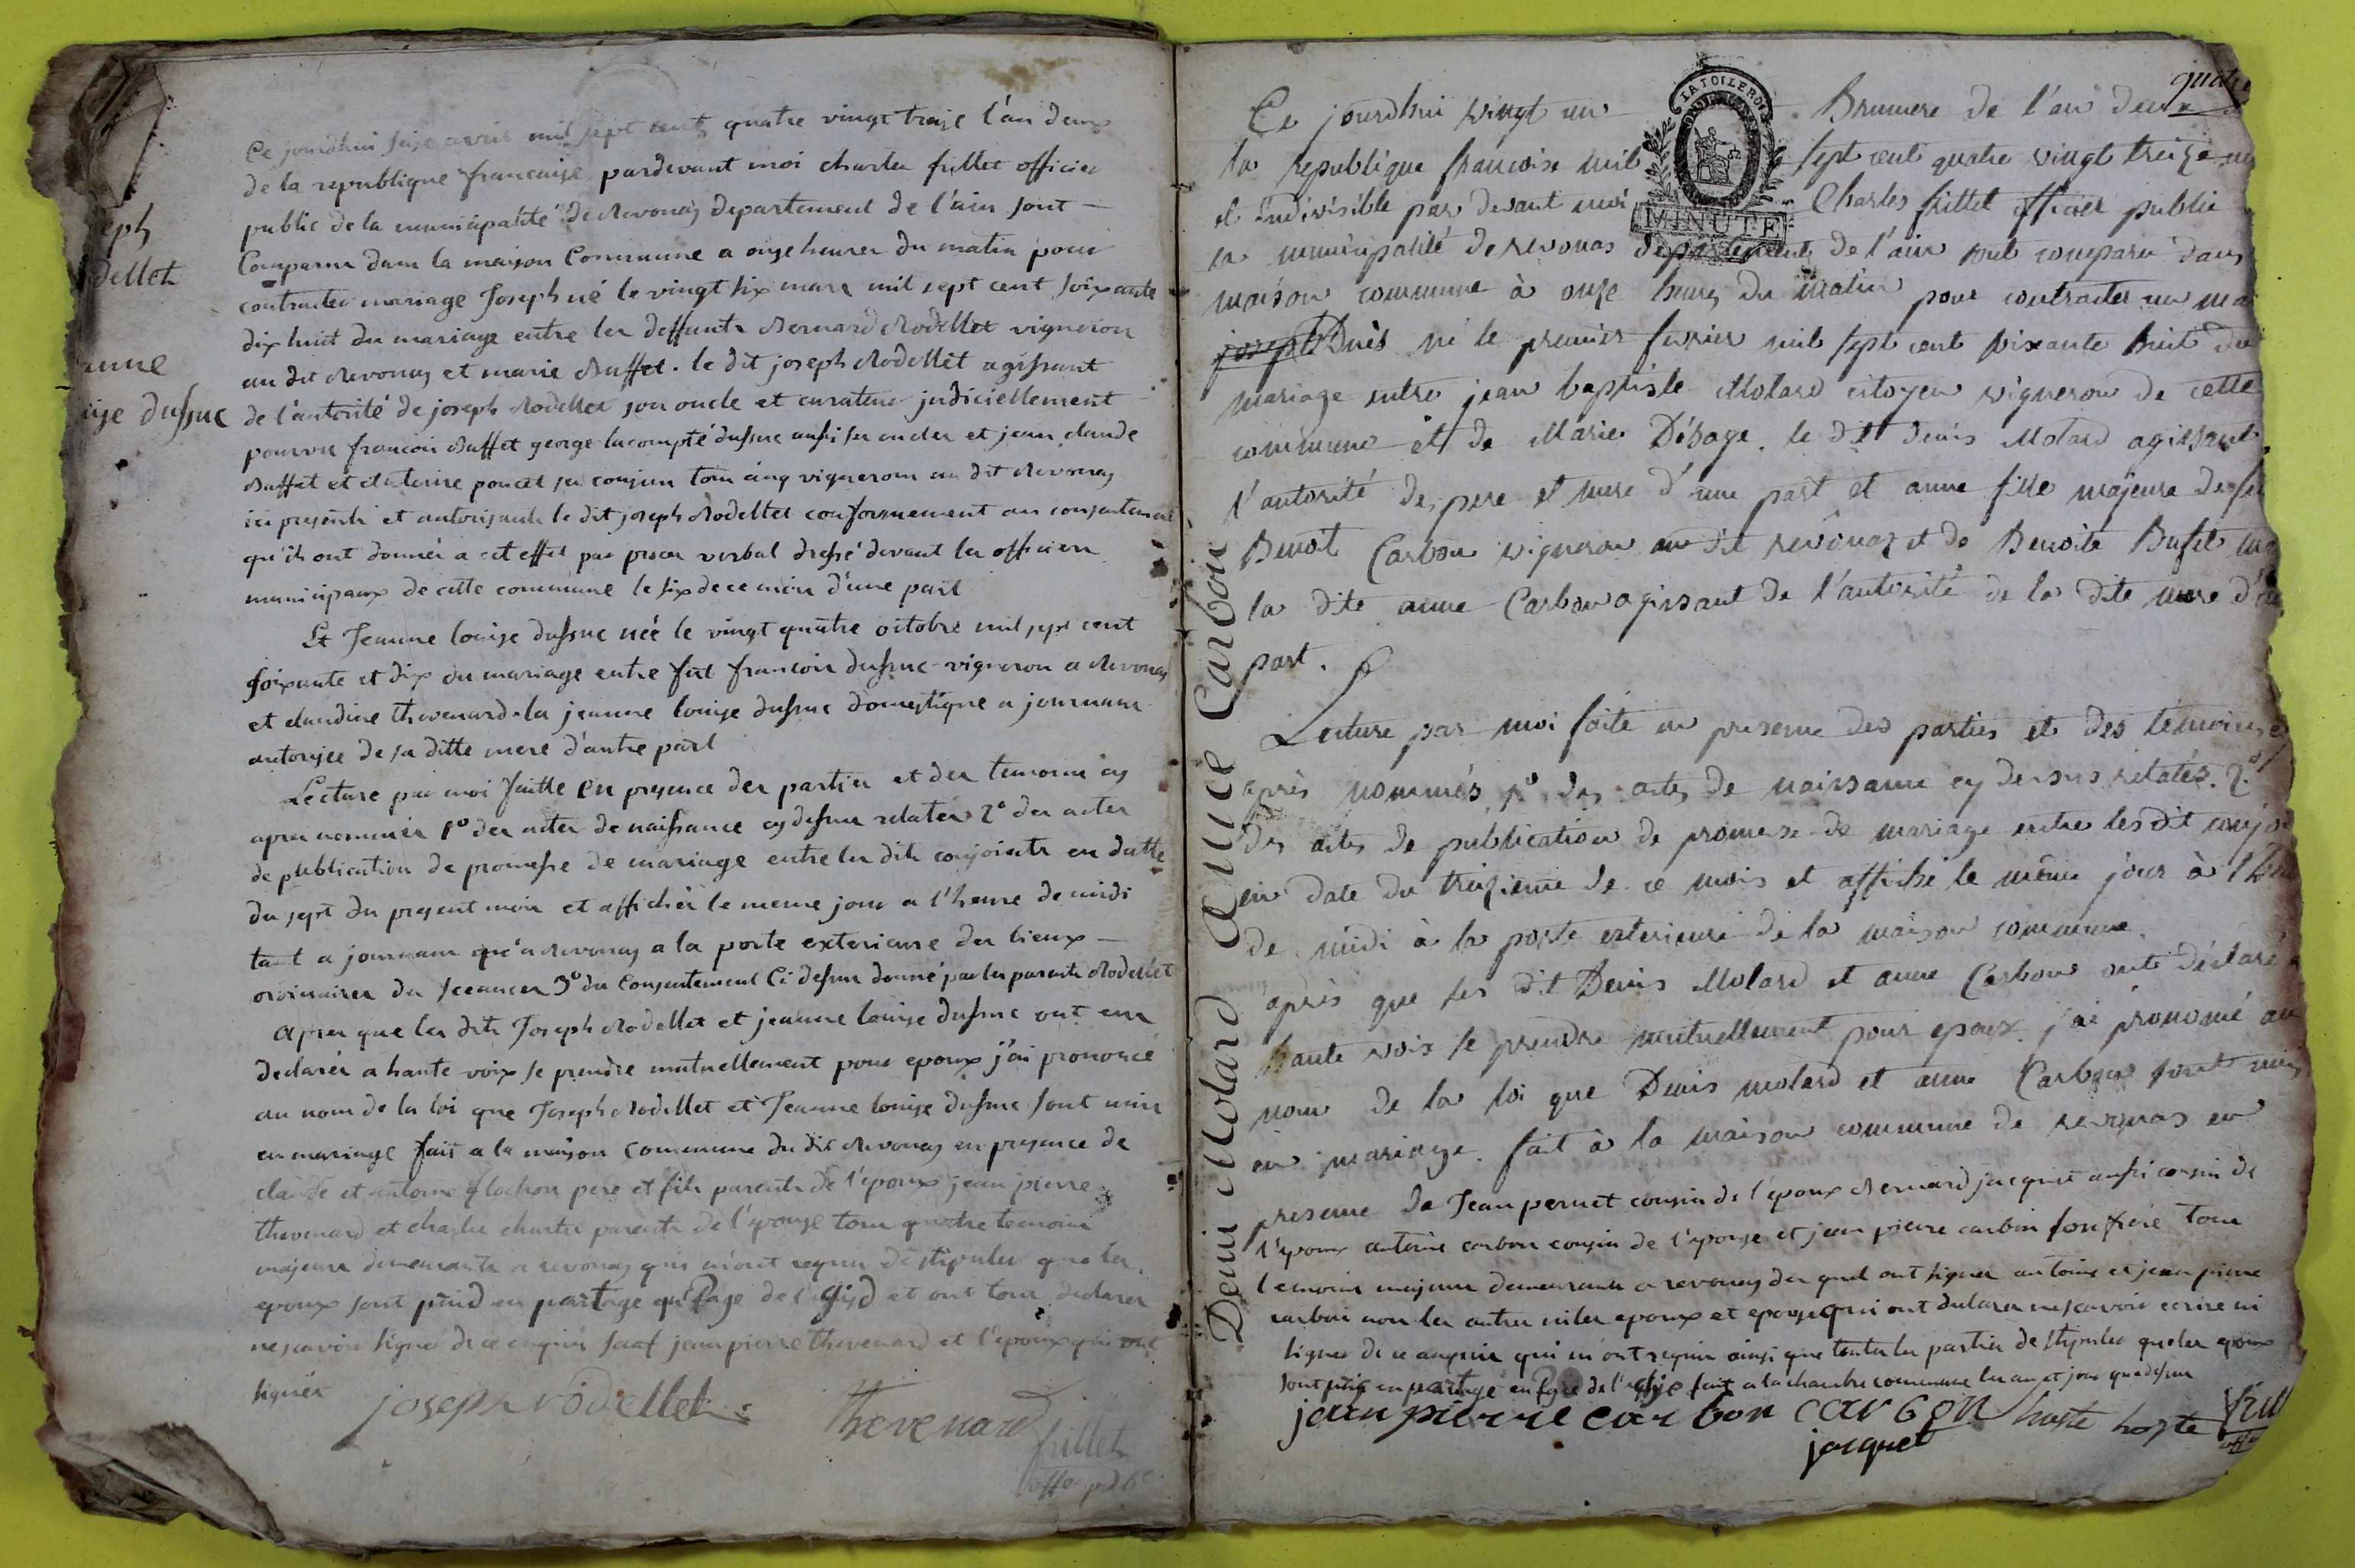 eph
dellet
anne
ise dufsuc
Ce jourdhui seize avril mil sept cent quatre vingt treize l'an deux
de la republique francaise pardevant moi charles frillet officier
public de la municipalité de Revonas departement de l'ain sont
Comparus dans la maison Commune a onze heures du matin pour
contracter mariage Joseph né le vingt six mars mil sept cent soixante
dix huit du mariage entre les deffunts Bernard Rodellet vigneron
au dit Revonas et marie Buffet. le dit joseph Rodellet agissant
de l'autorité de joseph Rodellet son oncle et curateur judiciellement
pourvu francois Buffet george lacompté dufsuc aussi ses oncles et jean claude
Buffet et poncet ses cousins tous cinq vignerons au dit Revonas
ici presents et autorisants le dit joseph Rodellet conformement au consentement
qu'ils ont donnés a cet effet par proces verbal dressé devant les officiers
municipaux de cette commune le six de ce mois d'une part
Et Jeanne louise dufsuc née le vingt quatre octobre mil sept cent
soixante et dix du mariage entre fut francois dufsuc vigneron a Revonas
et claudine thevenard. la jeanne louise dufsuc domestique a journans
autorisee de sa ditte mere d'autre part
Lecture par moi faitte en presence des parties et des temoins cy
apres nommés 1° des actes de naissance cy dessus relatés 2° des actes
de publication de promesse de mariage entre les dits conjoints en datte
du sept du present mois et affichés le meme jour a l'heure de midi
tant a journans qu'a Revonas a la porte exterieure des lieux
ordinaires des sceances 3° du Consentement Ci dessus donné par les parents Rodellet
Apres que les dits Joseph Rodellet et jeanne louise dufsuc ont eu
declarés a haute voix se prendre mutuellement pour epoux j'ai prononcé
au nom de la loi que Joseph Rodellet et Jeanne louise dufsuc sont unis
en mariage fait a la maison commune du dit Revonas en presence de
claude et antoine flochon pere et fils parents de l'epoux jean pierre
thevenard et charles parents de l'epouse tous quatre temoins
majeurs demeurants a revonas qui m'ont requis de stipuler que les
epoux sont en et ont tous declarés
ne scavoir signer de ce enquis sauf jean pierre thevenard et l'epoux qui ont
signés
joseph rodellet
thevenard
frillet
off pub
quatre
LA LOI LE ROI
MINUTE
Ce jourdhui vingt un Brumere de l'an deux
la republique francoise mil sept cent quatre vingt treize
et indivisible par devant moi Charles frillet officier public
la municipalité de revonas departement de l'ain sont comparu dans
maison commune à onze heures du matin pour contracter un
joseph Denis né le premier fevrier mil sept cent soixante huit du
mariage entre jean baptiste Molard citoyen vigneron de cette
commune et de Marie Désage. le dit denis Molard agissant
l'autorité des pere et mere d'une part et anne fille majeure de
Benoit Carbon vigneron au dit revonas et de Benoite Bufet
la dite anne Carbon agissant de l'autorité de la dite mere
part.
Denis Molard Anne Carbon
Lecture par moi faite en presence des parties et des temoins
après nommés 1° des actes de naissance cy dessus relatés. 2°
des actes de publication de promesse de mariage entre les dit
en date du treizieme de ce mois et affiché le même jour à
de midi à la porte exterieure de la maison commune.
après que les dit Denis Molard et anne Carbon ont déclaré
haute voix se prendre mutuellement pour epoux. j'ai prononcé au
nom de la loi que Denis molard et anne Carbon sont unis
en mariage. fait à la maison commune de revonas en
presence de Jean pernet cousin de l'epoux Bernard jacquet aussi cousin de
l'epoux antoine carbon cousin de l'epouse et jean pierre carbon son frere tous
temoins majeurs demeurants a revonas des quel ont signer antoine et jean pierre
carbon non les autres ni les epoux et epouse qui ont declarer ne scavoir ecrire ni
signer de ce enquis qui m'ont requis ainsi que toutes les parties de stipuler que les epoux
sont fait a la chambre commune les an et jour que dessus
jean pierre carbon carbon
jacquet